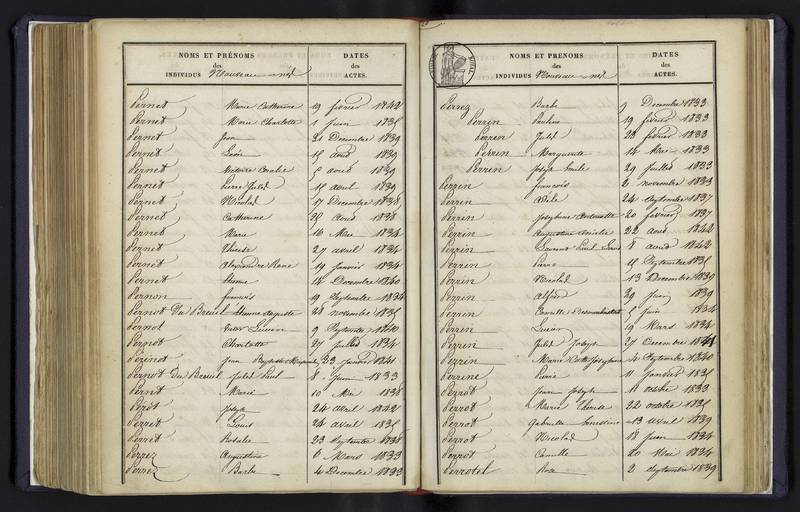 NOMS ET PRÉNOMS
des
INDIVIDUS Nouveau-nés
DATES
des
ACTES.
Pernet Marie Catherine 19 février 1842
Pernet Marie Charlotte 1 Juin 1835
Pernet Jean 21 Decembre 1839
Pernet Léon 15 aout 1839
Pernet Coralie 5 aout 1839
Pernet Pierre Jules 15 avril 1839
Pernet Nicolas 17 Decembre 1838
Pernet Catherine 26 Aout 1838
Pernet Marie 16 Mai 1834
Pernet Thérèse 27 avril 1834
Pernet Alexandre René 19 Janvier 1834
Pernet 14 Novembre 1840
Pernon francois 19 Septembre 1834
Pernot Du Breuil Etienne Auguste 28 novembre 1835
Pernot 9 Septembre 1840
Pernot Charlotte 27 Juillet 1834
Jean Baptiste 23 Janvier 1841
Pernot Du Breuil Jules Paul 8 Juin 1833
Marie 10 Mai 1838
Joseph 24 avril 1842
Perret Louis 24 avril 1835
Perret Rosalie 23 Septembre 1838
Perrez Augustine 6 Mars 1833
Perrez Barbe 4 Decembre 1833
NOMS ET PRENOMS
des
INDIVIDUS Nouveau-nés
DATES
des
ACTES.
Perrez Barbe 9 Decembre 1833
Perrin Pauline 19 février 1833
Perrin Jules 23 février 1833
Perrin Marguerite 14 Mai 1833
Perrin Joseph Emile 29 Juillet 1833
Perrin francois 2 novembre 1833
Perrin Adèle 24 Septembre 1837
Perrin Josephine Antoinette 20 février 1837
Perrin Augustine Amélie 22 aout 1842
Perrin Laurent Paul Louis 8 aout 1842
Perrin Pierre 15 Septembre 1835
Perrin Nicolas 13 Decembre 1839
Perrin Alfred 29 Juin 1839
Perrin Camille 5 Juin 1834
Perrin Lucien 19 Mars 1834
Perrin Jules Joseph 27 Decembre 1841
Perrin Marie Cath Josephine 4 Septembre 1840
Perrine Pierre 11 Janvier 1835
Perrot Jean Joseph 11 octobre 1833
Perrot Marie Thérèse 22 octobre 1835
Perrot Gabrielle 13 avril 1839
Perrot Nicolas 18 Juin 1834
Perrot Camille 20 Mai 1834
Perrotel Rose 2 Septembre 1839